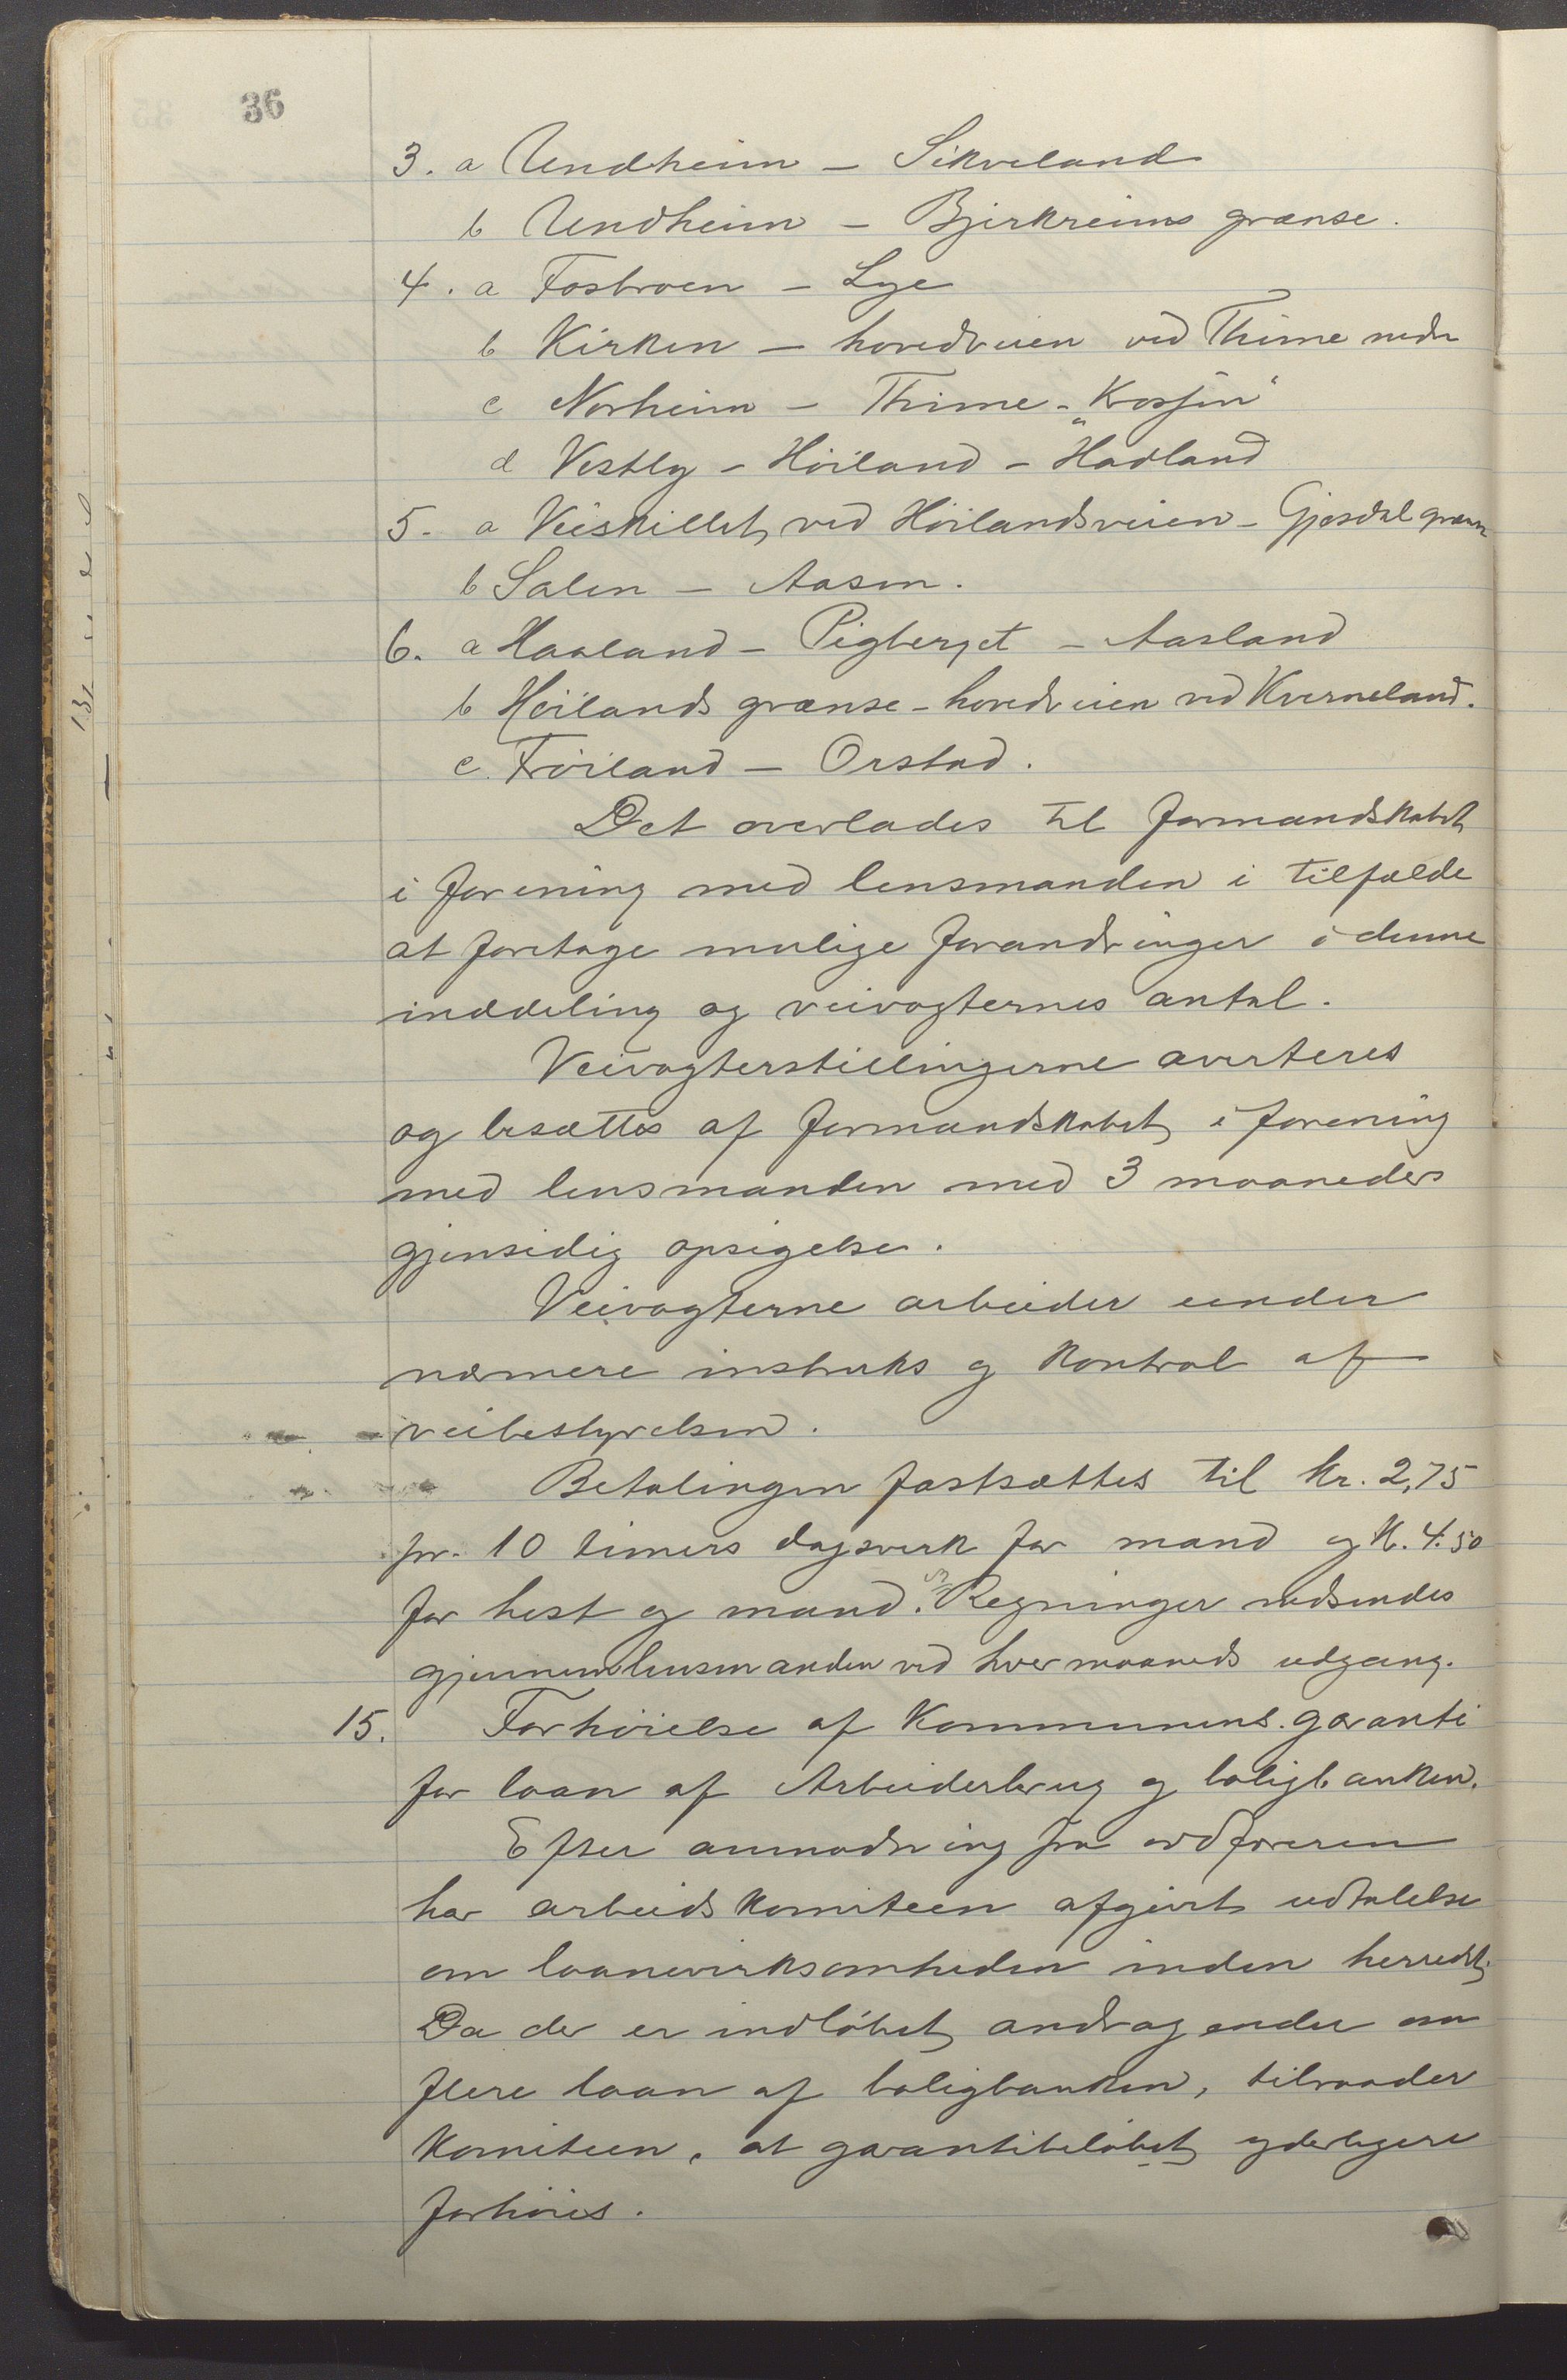 36
3. a Undheim – Sikveland
b Undheim – Bjerkreims grænse.
4. a Fosbroen – Lye
b Kirken – hovedveien ved Thime nedr
c Norheim – Thime – „Krossen"
d Vestly – Höiland – Hadland
5. a Veiskillet ved Höilandsveien – Gjesdal grænse
b Salen – Aasen.
6. a Haaland – Pigberget – Aasland
b Höilands grænse – hovedveien ved Kverneland.
c. Fröiland – Orstad.
Det overlades til formandskabet
i forening med lensmanden i tilfælde
at foretage mulige forandringer i denne
inddeling og veivogternes antal.
Veivogterstillingerne averteres
og besættes af formandskabet i forening
med lensmanden med 3 maaneders
gjensidig opsigelse.
Veivogterne arbeider under
nærmere instruks og kontrol af
veibestyrelsen.
Betalingen fastsættes til kr. 2,75
pr. 10 timers dagsverk for mand og K. 4.50
for hest og mand. Regninger indsendes
gjennem lensmanden ved hver maaneds udgang.
15. Forhöielse af Kommunens garanti
for laan af Arbeiderbrug og boligbanken.
Efter anmodning fra ordföreren
har arbeidskomiteen afgivt udtalelse
om laanevirksomheden inden herredet.
Da der er indlöbet andragender om
flere laan af boligbanken, tilraader
Komiteen, at garantibelöbet yderligere
forhöies.